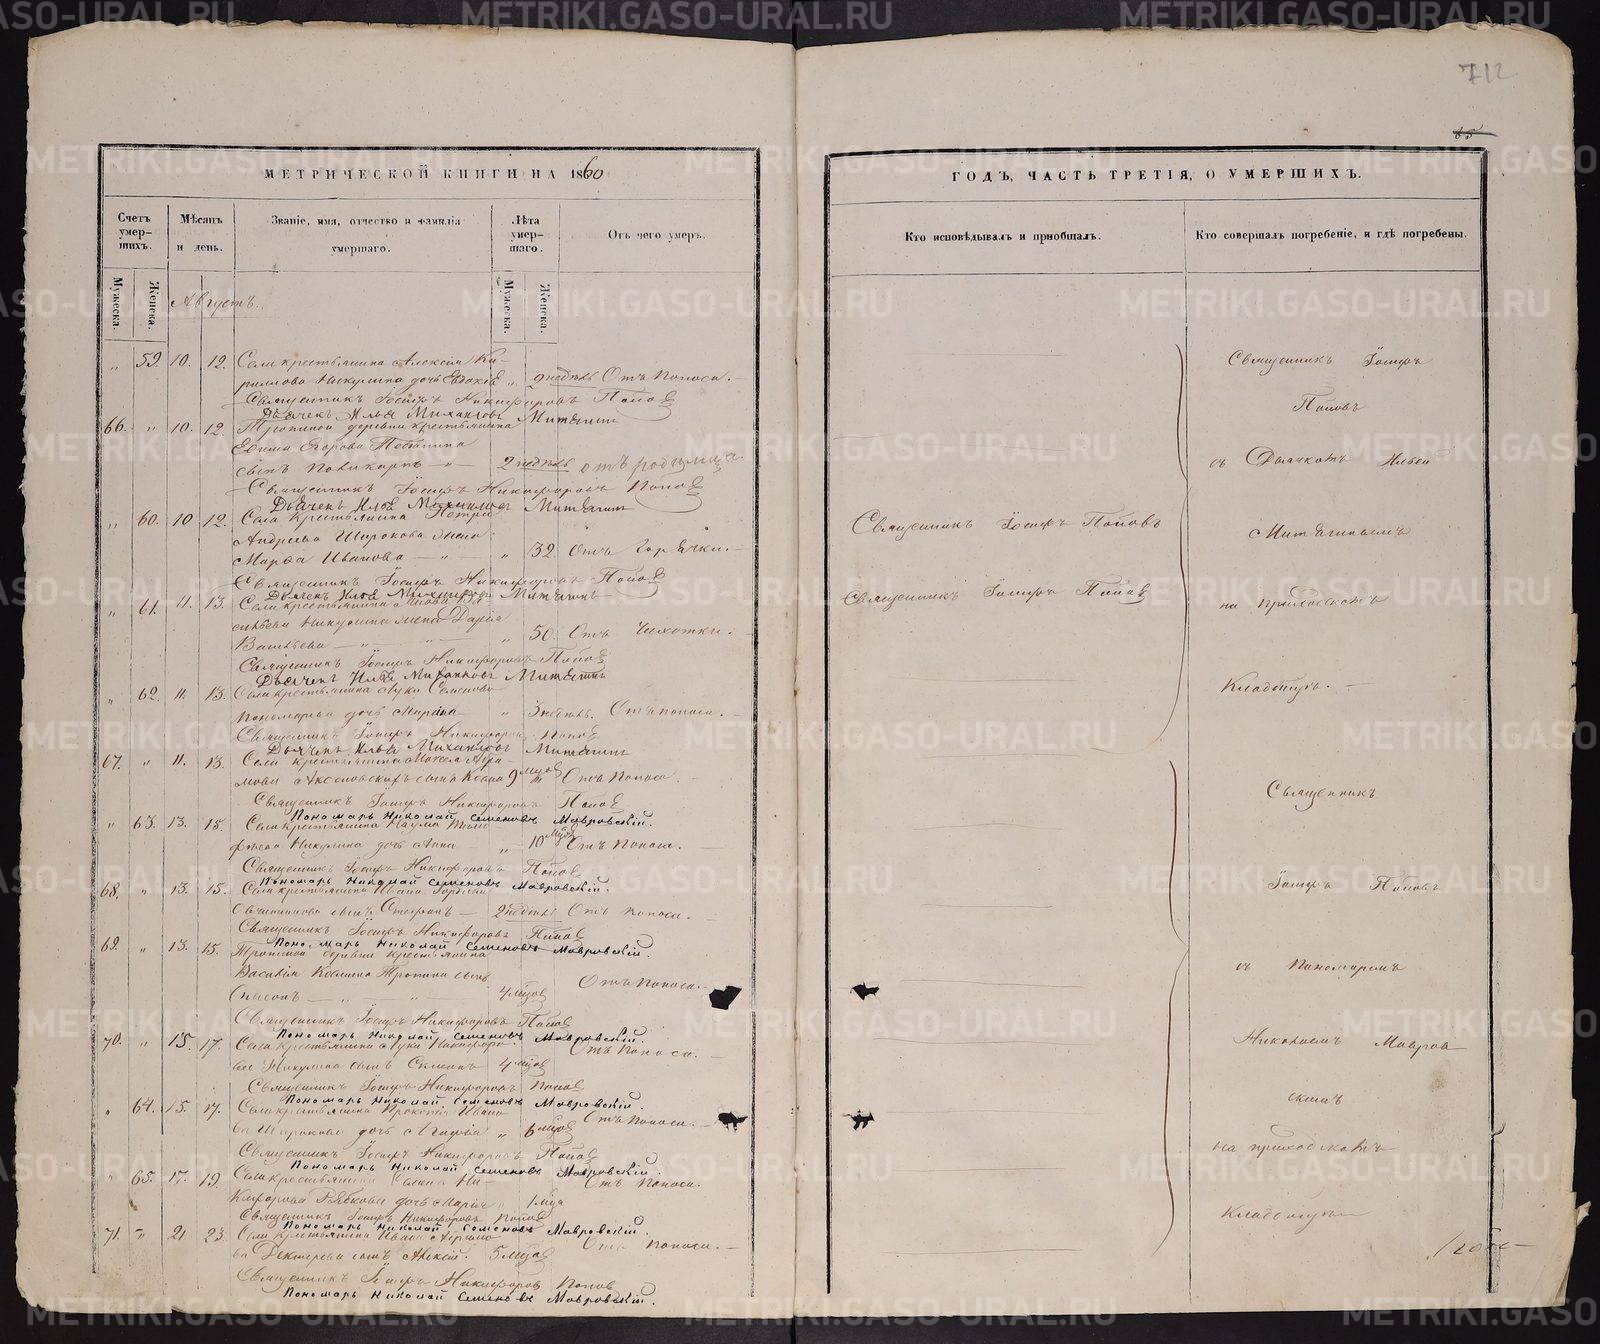 712
65
МЕТРИЧЕСКОЙ КНИГИ НА 1860
Счетъ умер-шихъ.
Мѣсяцъ и день.
Званіе, имя, отчество и фамилія умершаго.
Лѣта умер-шаго.
Отъ чего умеръ.
Мужеска.
Женска.
Мужеска.
Женска.
Августъ.
„ 59. 10. 12. Села крестьянина Алексѣя Ки-
рилова Никулина дочь Евдокія „ 2 недѣль Отъ поноса.
Священникъ Іосифъ Никифоровъ Поповъ
Дьячекъ Илья Михайловъ Митягинъ
66. „ 10. 12. Тропиной деревни крестьянина
Егорова
сынъ Поликарпъ — „ — 2 недѣль отъ родимца
Священникъ Іосифъ Никифоровъ Поповъ
Дьячекъ Илья Михайловъ Митягинъ
„ 60. 10 12. Села крестьянина Петра
Андреева Широкова жена
Марѳа Иванова — „ — „ 32 Отъ горячки.
Священникъ Іосифъ Никифоровъ Поповъ
Дьячекъ Илья Михайловъ Митягинъ
„ 61. 11. 13. Села крестьянина
Никулина жена Дарья
Васильева — „ — „ 50. Отъ чахотки.
Священникъ Іосифъ Никифоровъ Поповъ
Дьячекъ Илья Михайловъ Митягинъ
„ 62. 11. 13. Села крестьянина Луки Семенова
Пономарева дочь Марина „ 3 недѣль. Отъ поноса.
Священникъ Іосифъ Никифоровъ Поповъ
Дьячекъ Илья Михайловъ Митягинъ
67. „ 11. 13. Села крестьянина
сынъ 9 мцов Отъ поноса.
Священникъ Іосифъ Никифоровъ Поповъ
Пономарь Николай Семеновъ Мавровскій.
„ 63. 13. 15. Села крестьянина Наума
Никулина дочь Анна — „ 10 мцов Отъ поноса.
Священникъ Іосифъ Никифоровъ Поповъ
Пономарь Николай Семеновъ Мавровскій.
68. „ 13. 15. Села крестьянина Ивана
Овчинникова сынъ Стефанъ — 2 недѣль Отъ поноса.
Священникъ Іосифъ Никифоровъ Поповъ
Пономарь Николай Семеновъ Мавровскій.
69. „ 13. 15. Тропиной деревни крестьянина
Василія Тропина сынъ
— „ — „ — 4 мцов Отъ поноса.
Священникъ Іосифъ Никифоровъ Поповъ
Пономарь Николай Семеновъ Мавровскій.
70. „ 15. 17. Села крестьянина Луки Никифоро-
ва Никулина сынъ 4 мцов Отъ поноса.
Священникъ Іосифъ Никифоровъ Поповъ
Пономарь Николай Семеновъ Мавровскій.
„ 64. 15. 17. Села крестьянина Прокопія Ивано
ва Широкова дочь Агафія „ 6 мцов Отъ поноса.
Священникъ Іосифъ Никифоровъ Поповъ
Пономарь Николай Семеновъ Мавровскій.
„ 65. 17. 19. Села крестьянина Ни-
кифорова Рябкова дочь Марія „ 1 мца Отъ поноса.
Священникъ Іосифъ Никифоровъ Поповъ
Пономарь Николай Семеновъ Мавровскій.
71. „ 21. 23. Села крестьянина Ивана
ва Дектерева сынъ Алексѣй. 5 мцов Отъ поноса.
Священникъ Іосифъ Никифоровъ Поповъ
Пономарь Николай Семеновъ Мавровскій.
ГОДЪ, ЧАСТЬ ТРЕТІЯ, О УМЕРШИХЪ.
Кто исповѣдывалъ и пріобщалъ.
Кто совершалъ погребеніе, и гдѣ погребены.
Священникъ Іосифъ Поповъ
Священникъ Іосифъ Поповъ
Священникъ Іосифъ
Поповъ
съ Дьячкомъ Ильей
Митягинымъ
на приходскомъ
Кладбищѣ.
Священникъ
Іосифъ Поповъ
съ Пономаремъ
Николаемъ Мавров
скимъ
на приходскомъ
Кладбищѣ
METRIKI.GASO-URAL.RU